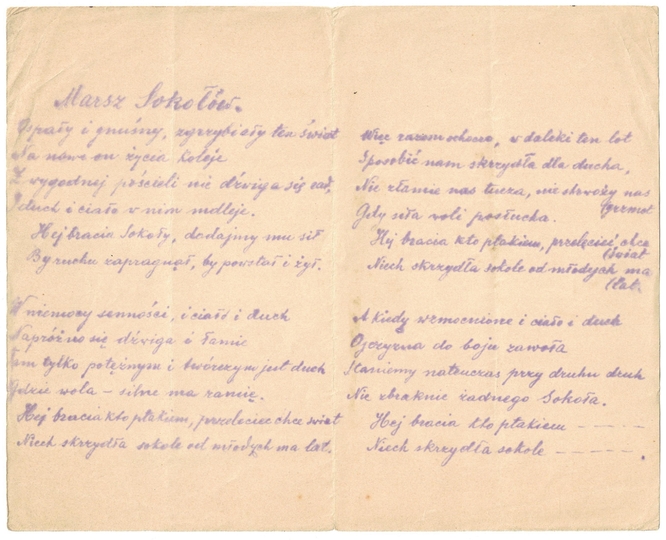 Marsz Sokołów.
Ospały i gnuśny, zgrzybiały ten świat
Na nowe on życia koleje
Z wygodnej pościeli nie dźwiga się rad,
I duch i ciało w nim mdleje.
Hej bracia Sokoły, dodajmy mu sił
By ruchu zapragnął, by powstał i żył.
W niemocy senności, i ciało i duch
Napróżno się dźwiga i łamie
Tam tylko potężnym i twórczym jest duch
Gdzie wola – silne ma ramie.
Hej bracia kto ptakiem, przelecieć chce świat
Niech skrzydła sokole od młodych ma lat.
Więc razem ochoczo, w daleki ten lot
Sposobić nam skrzydła dla ducha,
Nie złamie nas burza, nie strwoży nas
(grzmot
Gdy siła woli posłucha.
Hej bracia kto ptakiem, przelecieć chce
(świat
Niech skrzydła sokole od młodych ma
(lat.
A kiedy wzmocnione i ciało i duch
Ojczyzna do boju zawoła
Staniemy natenczas przy druhu druh
Nie zbraknie żadnego Sokoła.
Hej bracia kto ptakiem – – – –
Niech skrzydła sokole – – – – –